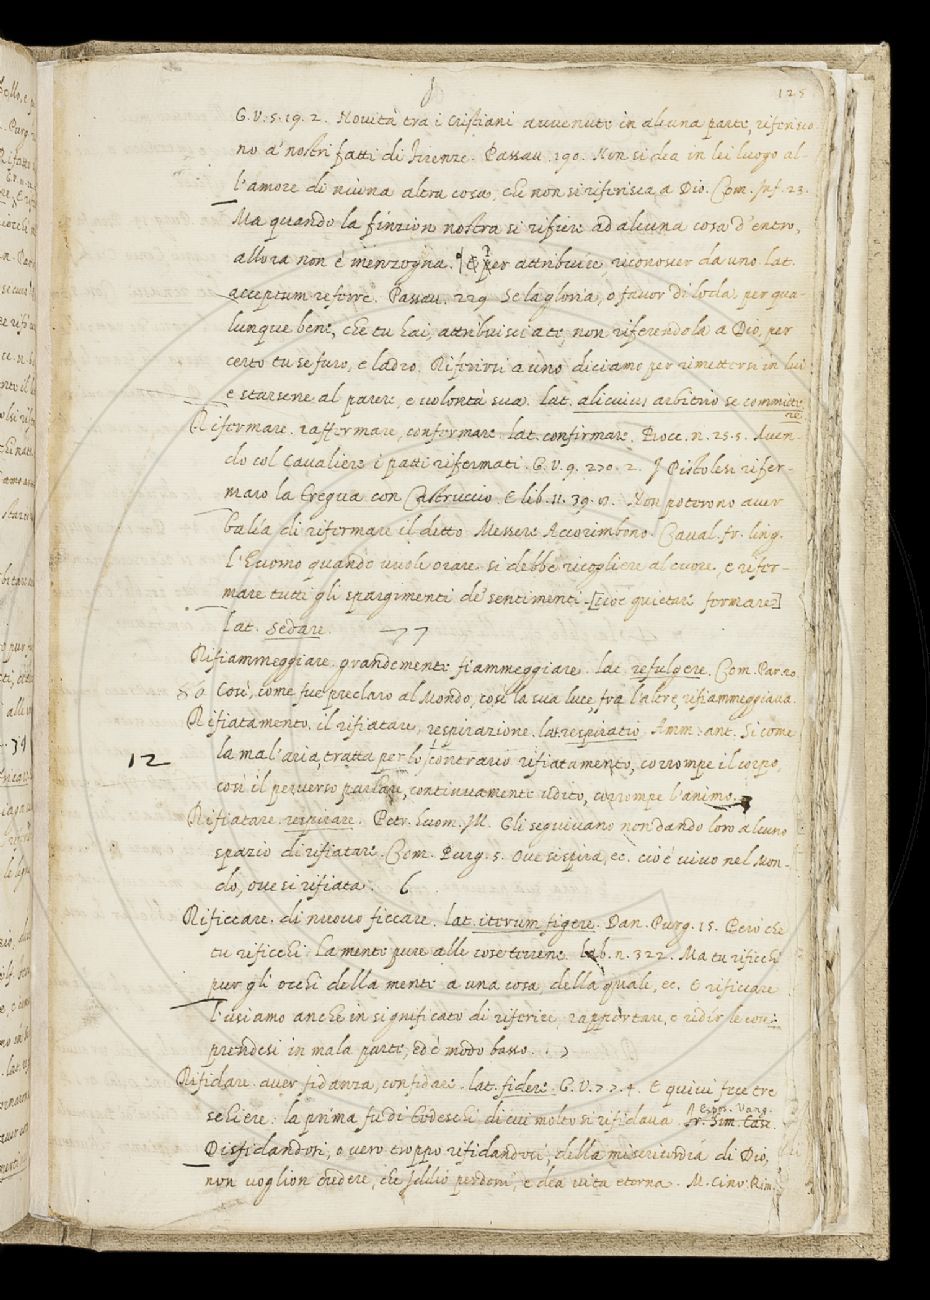 125
G. V. 5. 19. 2. Novità tra i Cristiani avvenute in alcuna parte, riferisco
no a' nostri fatti di Firenze. Passau. 190. Non si dea in lei luogo al-
l'amore di niuna altra cosa, che non si riferisca a Dio. Com. Inf. 23.
Ma quando la finzion nostra si riferisce ad alcuna cosa d'entro,
allora non è menzogna. per attribuire, riconoscer da uno. lat.
acceptum referre. Passau. 229 Se la gloria, o favor di loda, per qua-
lunque bene, che tu hai, attribuisci a te, non riferendola a Dio, per
certo tu se furo, e ladro. Riferirsi a uno diciamo per rimettersi in lui
e starsene al parere, e volontà sua. lat. alicuius arbitrio se committe
re.
Rifermare. raffermare, confermare. lat. confirmare. Bocc. n. 25. 5. Aven-
do col Cavaliere i patti rifermati. G. V. 9. 270. 2. I Pistolesi rifer-
maro la tregua con Castruccio. E lib. 11. 39. Non poterono aver
balia di rifermare il detto Messere Accorimbono. Caval. fr. ling.
l'huomo quando vuole orare si debbe ricogliere al cuore, e rifer-
mare tutti gli spargimenti de' sentimenti [cioè quietare fermare]
lat. sedare.
Rifiammeggiare. grandemente fiammeggiare. lat. refulgere. Com. Par. 20
Così, come fue preclaro al Mondo, così la sua luce fra l'altre rifiammeggiava.
Rifiatamento. il rifiatare, respirazione. lat. respiratio. Amm. ant. Si come
12
la mal'aria, tratta per lo contrario rifiatamento, corrompe il corpo,
così il perverso parlare, continuamente udito, corrompe l'animo.
Rifiatare. respirare. Petr. huom. Ill. Gli seguivano non dando loro alcuno
spazio di rifiatare. Com. Purg. 5. Ove si spira, ec. cioè vivo nel Mon-
do, ove si rifiata. 6.
Rificcare. di nuovo ficcare. lat. iterum figere. Dan. Purg. 15. Però che
tu rificchi La mente pure alle cose terrene. Lab. n. 322. Ma tu rificchi
pur gli occhi della mente a una cosa, della quale, ec. E rificcare
l'usiamo anche in significato di riferire, rapportare, e ridir le cose:
prendesi in mala parte, ed è modo basso.
Rifidare. aver fidanza, confidare. lat. fidere. G. V. 7. 7. 4. E quivi fece tre
schiere. la prima fu di Todeschi di cui molto si rifidava. fr. Sim. Casc.
Espos. Vang.
Disfidandosi, o vero troppo rifidandosi, della misericordia di Dio,
non voglion credere, che Iddio perdoni, e dea vita eterna. M. Cino. Rim.